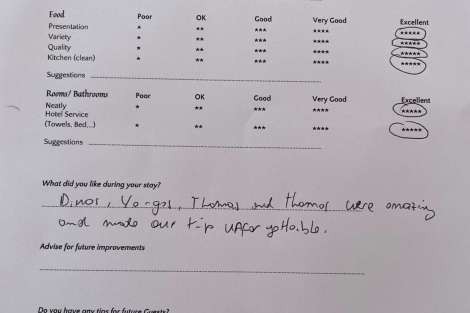 Food Poor OK Good Very Good Excellent
Presentation * ** *** **** *****
Variety * ** *** **** *****
Quality * ** *** **** *****
Kitchen (clean) * ** *** **** *****
Suggestions
Rooms/ Bathrooms Poor OK Good Very Good Excellent
Neatly * ** *** **** *****
Hotel Service
(Towels, Bed,..) * ** *** **** *****
Suggestions
What did you like during your stay?
Dinos, Yo-gos, Thomas and thomas were amazing
and made our trip unforgettable.
Advise for future improvements
Do you have any tips for future Guests?